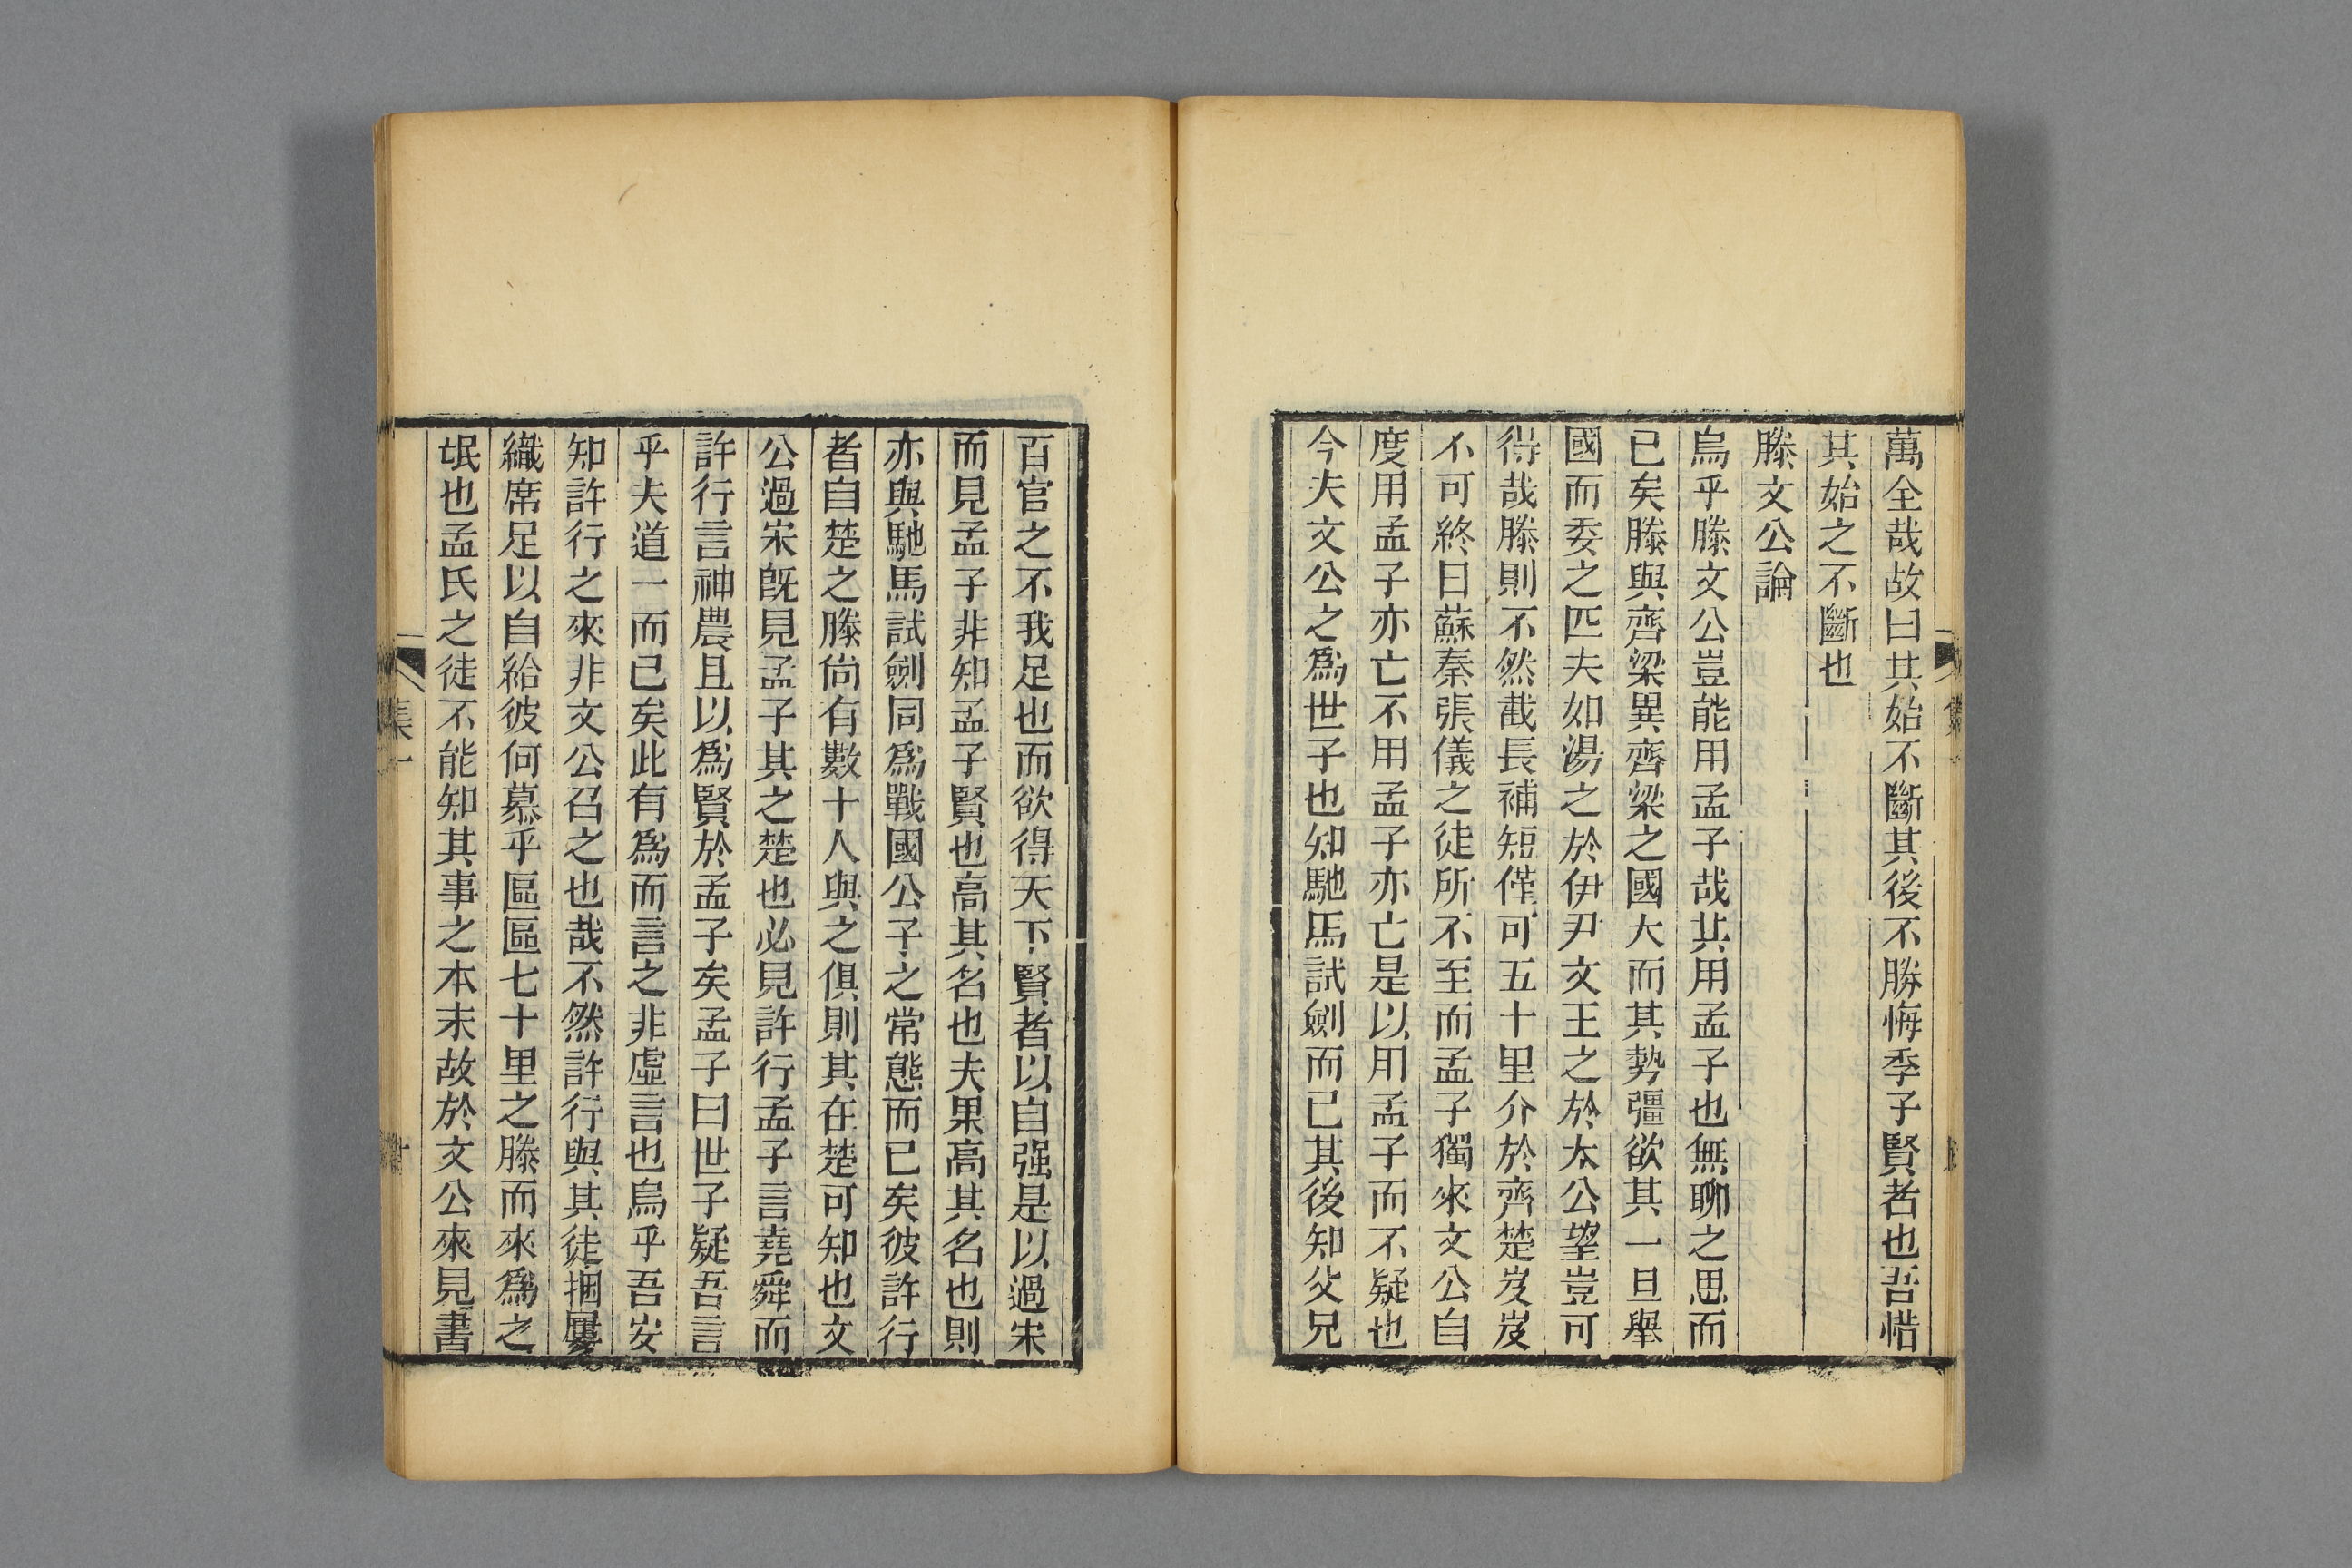 萬全哉故曰其始不斷其後不勝悔季子賢者也吾惜
其始之不斷也
滕文公論
烏乎滕文公豈能用孟子哉其用孟子也無聊之思而
已矣滕與齊梁異齊梁之國大而其勢彊欲其一旦舉
國而委之匹夫如湯之於伊尹文王之於太公望豈可
得哉滕則不然截長補短僅可五十里介於齊楚岌岌
不可終日蘇秦張儀之徒所不至而孟子獨來文公自
度用孟子亦亡不用孟子亦亡是以用孟子而不疑也
今夫文公之爲世子也知馳馬試劍而已其後知父兄
百官之不我足也而欲得天下賢者以自强是以過宋
而見孟子非知孟子賢也高其名也夫果高其名也則
亦與馳馬試劍同爲戰國公子之常態而已矣彼許行
者自楚之滕尙有數十人與之俱則其在楚可知也文
公過宋旣見孟子其之楚也必見許行孟子言堯舜而
許行言神農且以爲賢於孟子矣孟子曰世子疑吾言
乎夫道一而已矣此有爲而言之非虛言也烏乎吾安
知許行之來非文公召之也哉不然許行與其徒捆屨
織席足以自給彼何慕乎區區七十里之滕而來爲之
氓也孟氏之徒不能知其事之本末故於文公來見書
集一